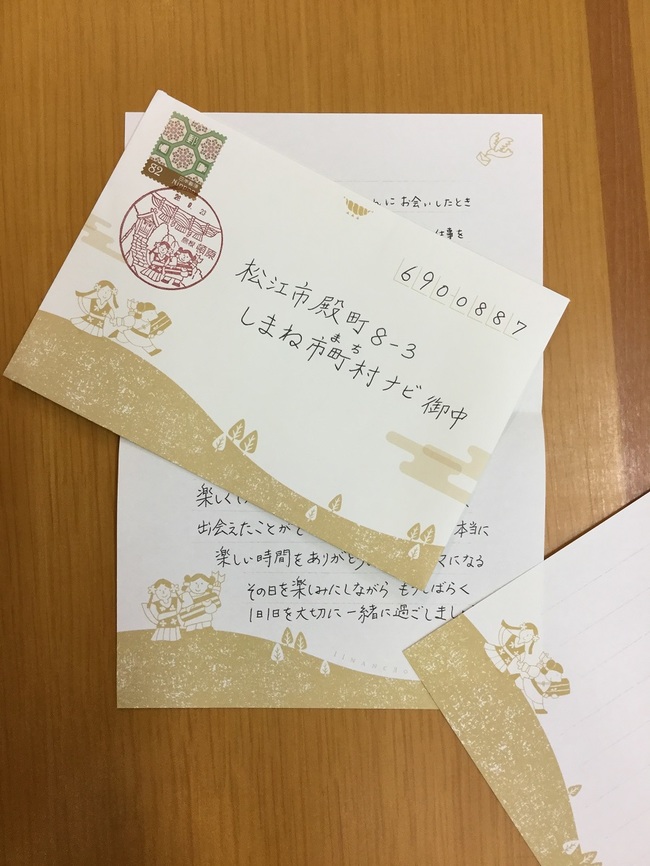 82
島根 頓原
6900887
松江市殿町8-3
まち
しまね市町村ナビ 御中
んにお会いしたとき
仕事を
楽しく
出会えたことが
本当に
楽しい時間をありがとう
マになる
その日を楽しみにしながら もうしばらく
1日1日を大切に 一緒に過ごしまし